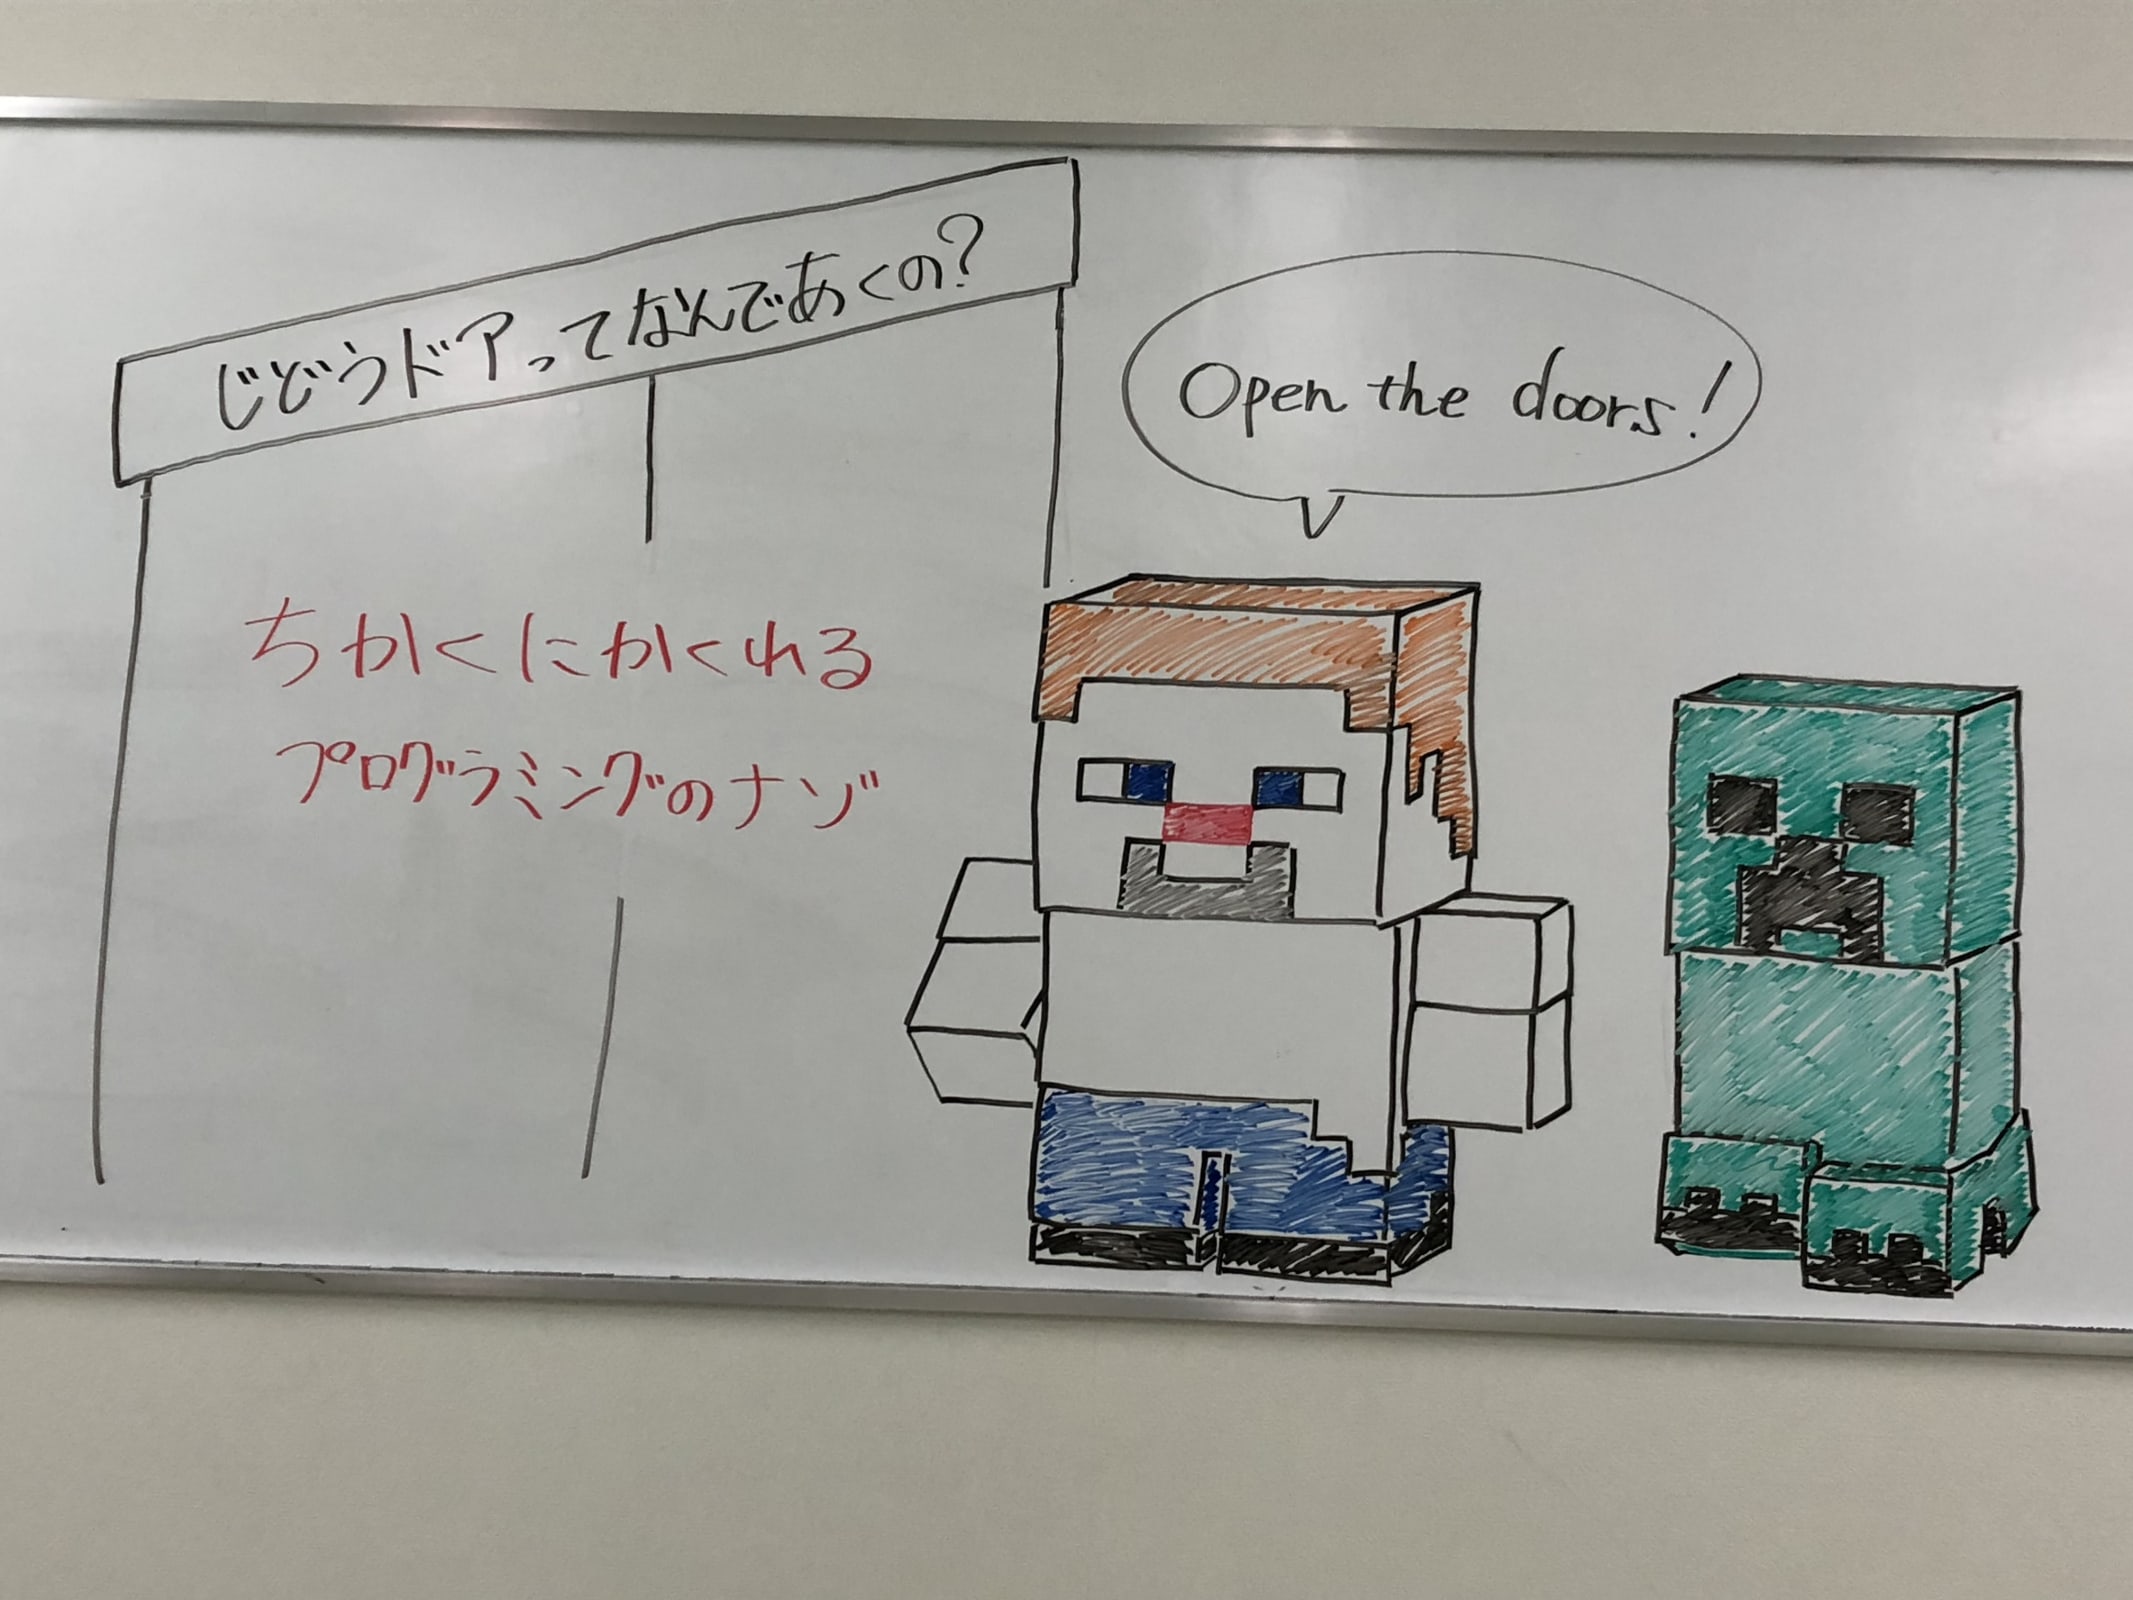 じどうドアってなんであくの?
ちかくにかくれる
プログラミングのナゾ
Open the doors!